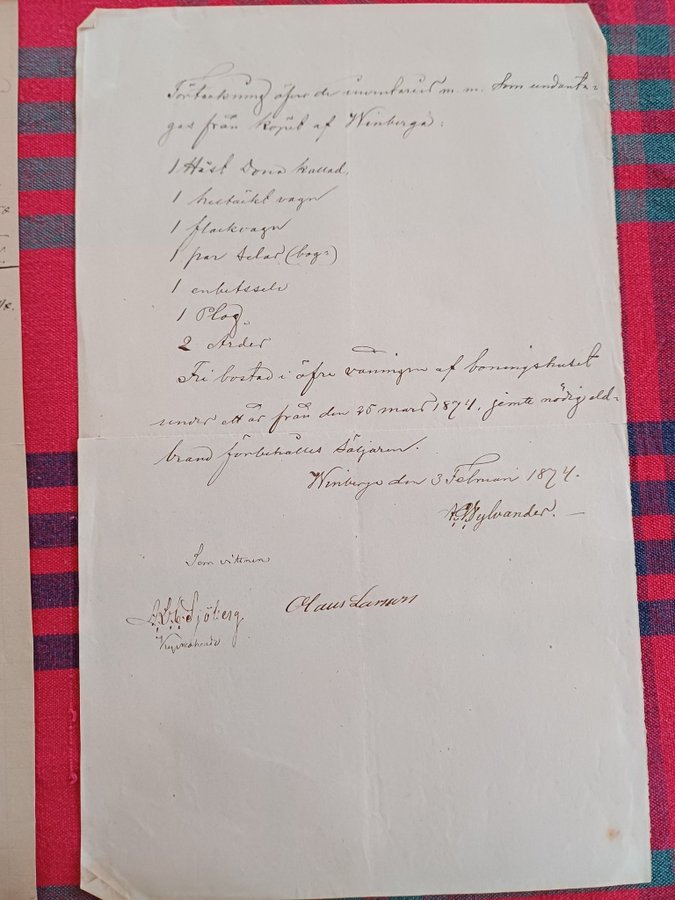 Förteckning öfver de inventarier m. m. Som undanta-
gas från köpet af Winberga:
1 Häst Dona kallad,
1 vagn
1 flackvagn
1 par Selar (bog-)
1 enbetssele
1 Plog,
2 Årder
Fri bostad i öfre våningen af boningshuset
under ett år från den 25 mars 1874, jemte nödig eld-
brand förbehålles Säljaren.
Winberga den 3 Februari 1874.
Sylvander. —
Som vittnen
Sjöberg
Olaus Larsson